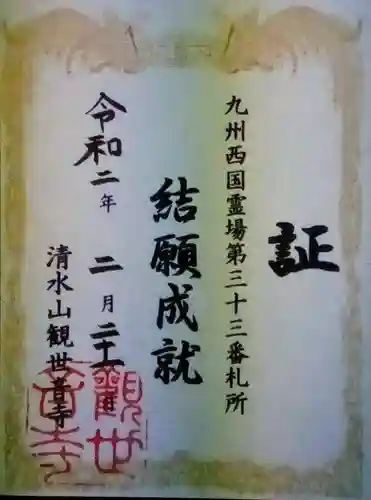 証
九州西国霊場第三十三番札所
結願成就
令和二年 二月二十一日
清水山観世音寺
観世音寺